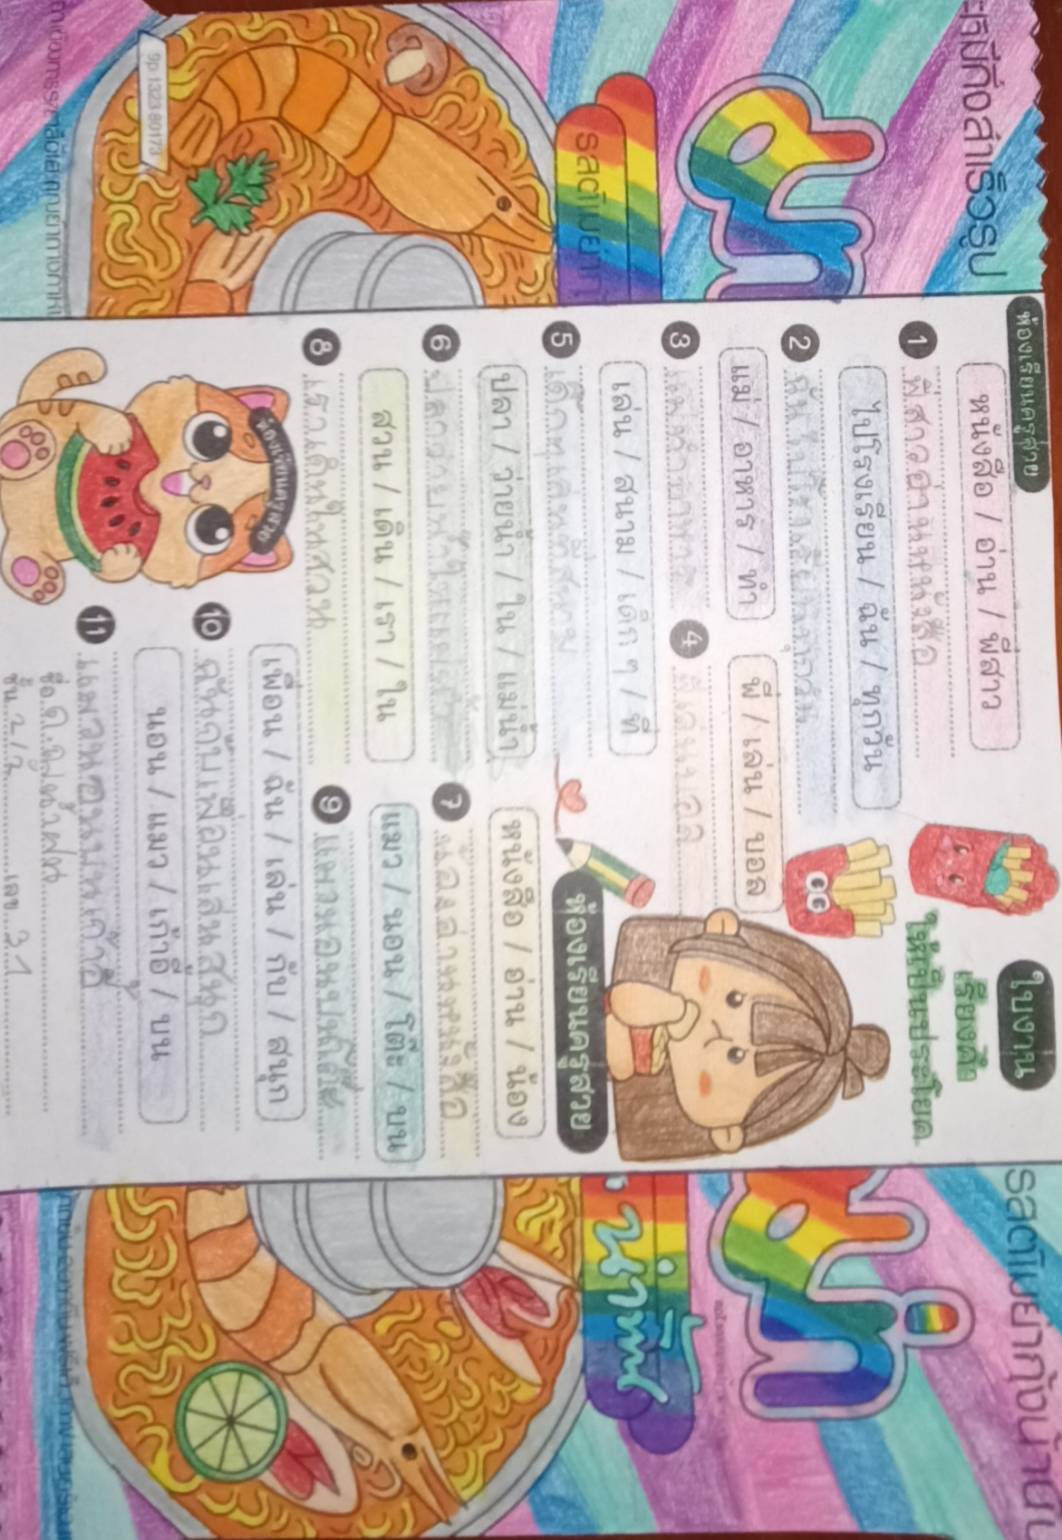 ห้องเรียนครูส่วย
ใบงาน
เรียงคำ
ให้เป็นประโยค
หนังสือ / อ่าน / พี่สาว
1 พี่สาวอ่านหนังสือ
ไปโรงเรียน / ฉัน / ทุกวัน
2 ฉันไปโรงเรียนทุกวัน
แม่ / อาหาร / ทำ
3 แม่ทำอาหาร
พี่ / เล่น / บอล
4 พี่เล่นบอล
เล่น / สนาม / เด็ก ๆ / ที่
5 เด็กๆเล่นที่สนาม
ห้องเรียนครูส่วย
ปลา / ว่ายน้ำ / ใน / แม่น้ำ
6 ปลาว่ายน้ำในแม่น้ำ
หนังสือ / อ่าน / น้อง
7 น้องอ่านหนังสือ
สวน / เดิน / เรา / ใน
8 เราเดินในสวน
แมว / นอน / โต๊ะ / บน
9 แมวนอนบนโต๊ะ
เพื่อน / ฉัน / เล่น / กับ / สนุก
10 ฉันกับเพื่อนเล่นสนุก
นอน / แมว / เก้าอี้ / บน
11 แมวนอนบนเก้าอี้
ชั้น 2/2 เลข 31
รสต้มยำ
น้ำข้น